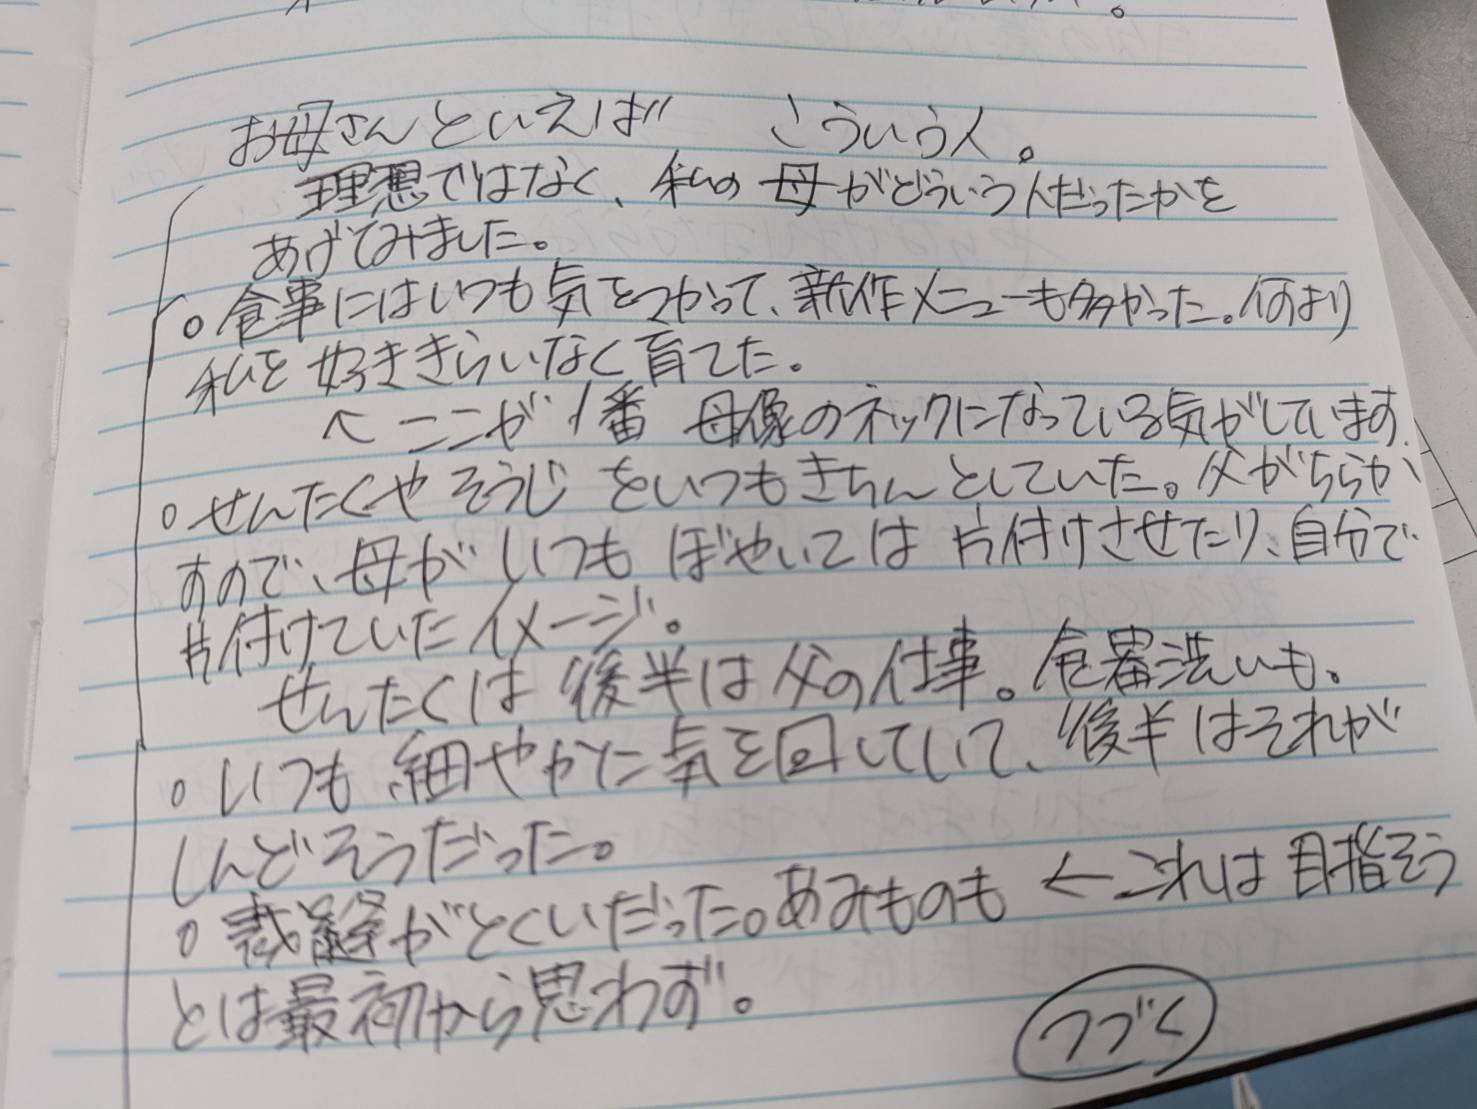 お母さんといえば　こういう人。
理想ではなく、私の母がどういう人だったかを
あげてみました。
○食事にはいつも気をつかって、新作メニューも多かった。何より
私を好ききらいなく育てた。
へここが1番 母像のネックになっている気がしています。
○せんたくやそうじをいつもきちんとしていた。父がちらか
すので、母がいつもぼやいては片付けさせたり、自分で
片付けていたイメージ。
せんたくは後半は父の仕事。食器洗いも。
○いつも細やかに気を回していて、後半はそれが
しんどそうだった。
○裁縫がとくいだった。あみものも ←これは目指そう
とは最初から思わず。
つづく